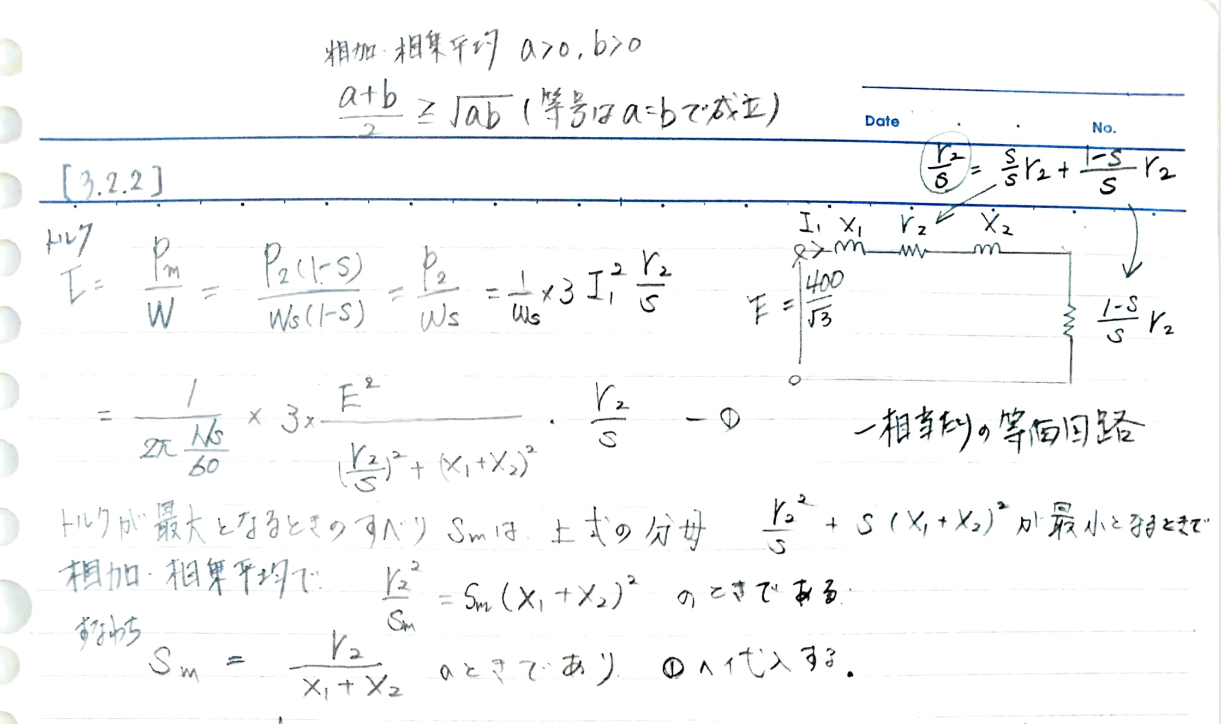 相加・相乗平均 a>0, b>0
(a+b)/2 ≧ √ab (等号はa=bで成立)
Date No.
r₂/s = s/s r₂ + (1-s)/s r₂
[3.2.2]
トルク
T = Pm/W = P₂(1-s)/Ws(1-s) = P₂/Ws = 1/ωs ×3 I₁² r₂/s
I₁ X₁ r₂ X₂
E = 400/√3
(1-s)/s r₂
= 1/(2π Ns/60) × 3× E²/((r₂/s)² + (X₁+X₂)²) · r₂/s −①
一相当たりの等価回路
トルクが最大となるときのすべりSmは 上式の分母 r₂²/s + s(X₁+X₂)² が最小となるときで
相加・相乗平均で r₂²/Sm = Sm(X₁+X₂)² のときである.
すなわち
Sm = r₂/(X₁+X₂) のときであり ①へ代入する.